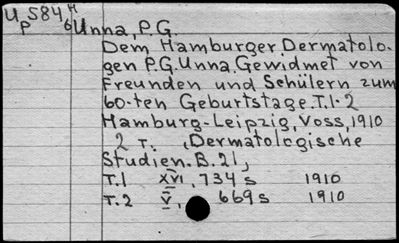 U 584 H
P 6 Unna, P.G.
Dem Hamburger Dermatolo-
gen P.G. Unna. Gewidmet von
Freunden und Schülern zum
60-ten Geburtstage. T.1-2
Hamburg-Leipzig, Voss, 1910
2 T. (Dermatologische
Studien. B. 21)
T.1 XVI, 734 s 1910
T.2 V, 669 s 1910